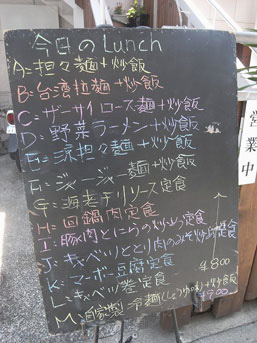 今日のLunch
A=担々麺+炒飯
B=台湾拉麺+炒飯
C=ザーサイロース麺+炒飯
D=野菜ラーメン+炒飯
E=涼担々麺+炒飯
F=ジャージャー麺+炒飯
G=海老チリソース定食
H=回鍋肉定食
I=豚肉とにらの炒め定食
J=キャベツととり肉のみそ炒め定食
K=マーボー豆腐定食
¥800
L=キャベツ巻定食
M=自家製 冷麺(しょうゆ味)+炒飯
¥900
営業中